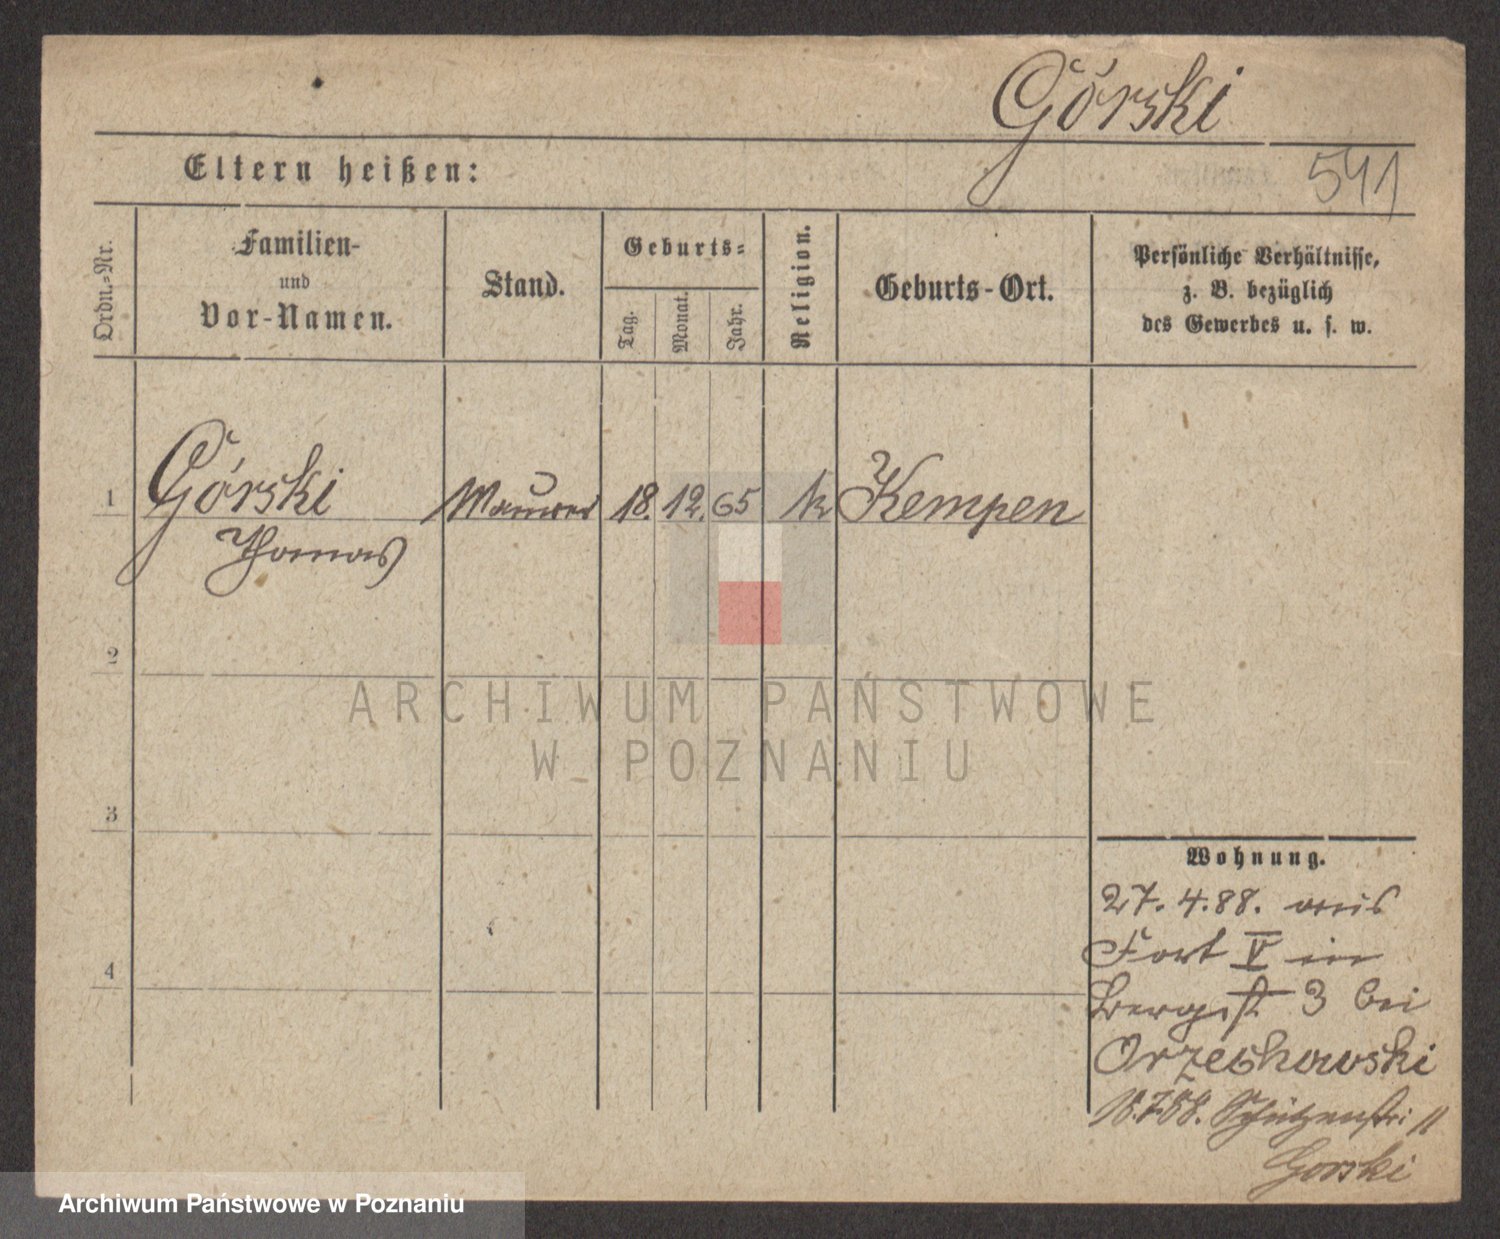 Górski
Eltern heißen:
541
Ordn.-Nr.
Familien-
und
Vor-Namen.
Stand.
Geburts-
Tag.
Monat.
Jahr.
Religion.
Geburts-Ort.
Persönliche Verhältnisse,
z. B. bezüglich
des Gewerbes u. s. w.
1 Górski Maurer 18. 12. 65 k Kempen
Thomas
2
3
4
ARCHIWUM PAŃSTWOWE
W POZNANIU
Wohnung.
27. 4. 88. aus
Fort V in
Bergst 3 bei
Orzechowski
18.7.88. Schützenstr 11
Gorski
Archiwum Państwowe w Poznaniu